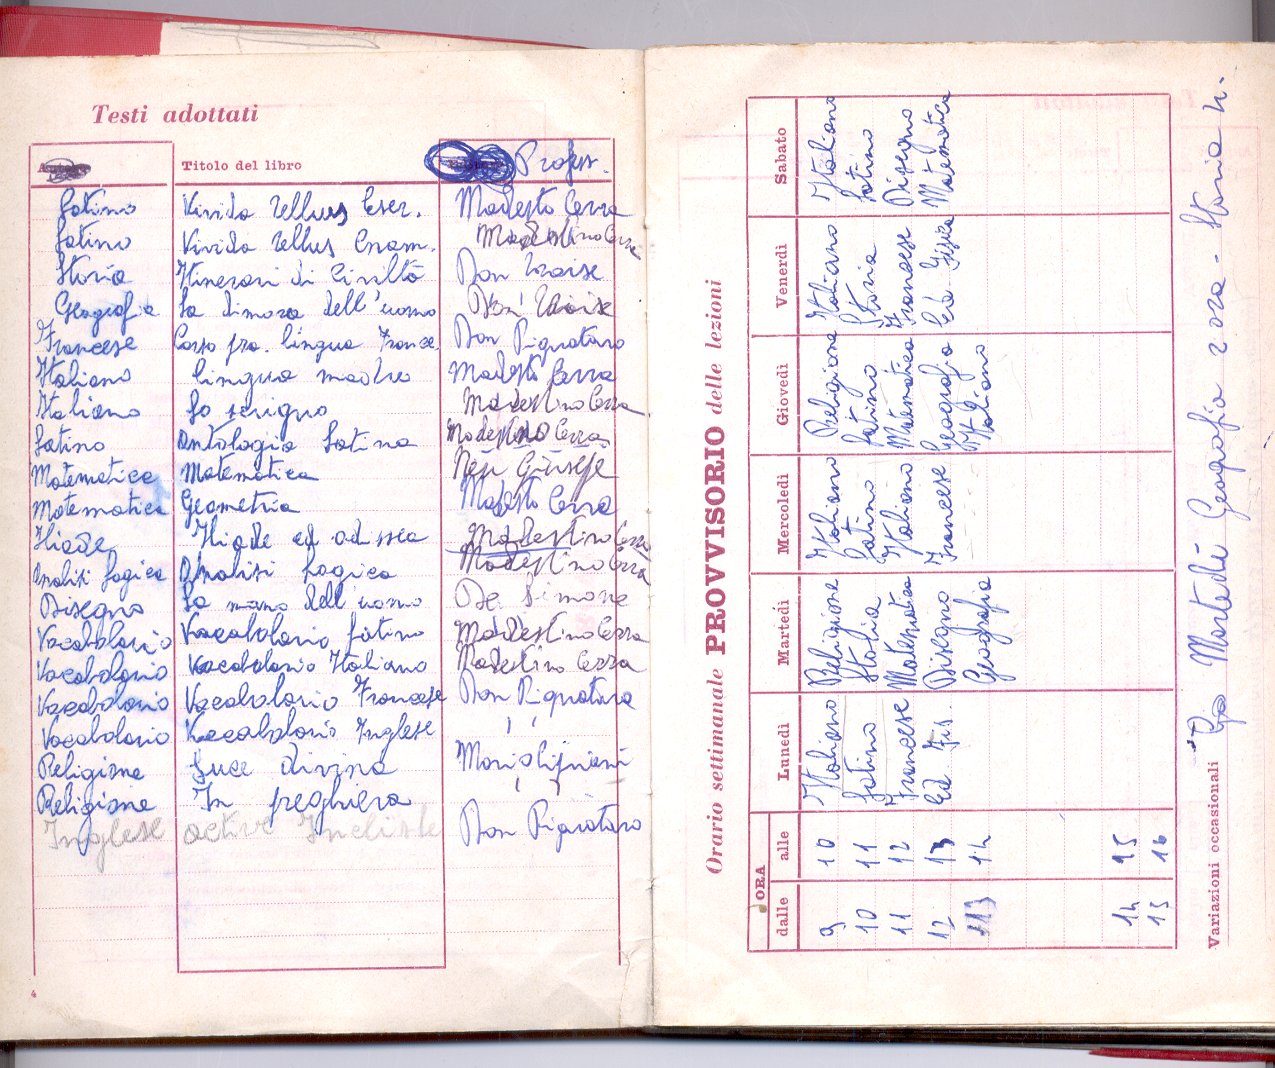 Testi adottati
Titolo del libro Profess.
Latino Vivida Tellus Eser. Modesto Cerra
Latino Vivida Tellus Gram. Modestino Cerra
Storia Itinerari di Civiltà Don
Geografia La dimora dell'uomo Don
Francese Corso pra. lingua France. Don Pignataro
Italiano Lingua madre Modesto Cerra
Italiano Lo scrigno Modestino Cerra
Latino Antologia Latina Modestino Cerra
Matematica Matematica Giuseppe
Matematica Geometria Modesto Cerra
Iliade Iliade ed odissea Modestino Cerra
Analisi Logica Analisi Logica Modestino Cerra
Disegno La mano dell'uomo De Simone
Vacabolario Vacabolario Latino Modestino Cerra
Vacabolario Vacabolario Italiano Modestino Cerra
Vacabolario Vacabolario Francese Don Pignataro
Vocabolario Vacabolario Inglese ' '
Religione Luce divina
Religione In preghiera ' '
Inglese active Don Pignataro
4
Orario settimanale PROVVISORIO delle lezioni
ORA
dalle alle Lunedì Martedì Mercoledì Giovedì Venerdì Sabato
9 10 Italiano Religione Italiano Religione Italiano Italiano
10 11 Latino Storia Latino Latino Storia Latino
11 12 Francese Matematica Italiano Matematica Francese Disegno
12 13 Ed. Fis.. Disegno Francese Geografia Ed. Fisica Matematica
13 14 Geografia Italiano
14 15
15 16
Variazioni occasionali Martedì Geografia 2 ora - Storia 4.